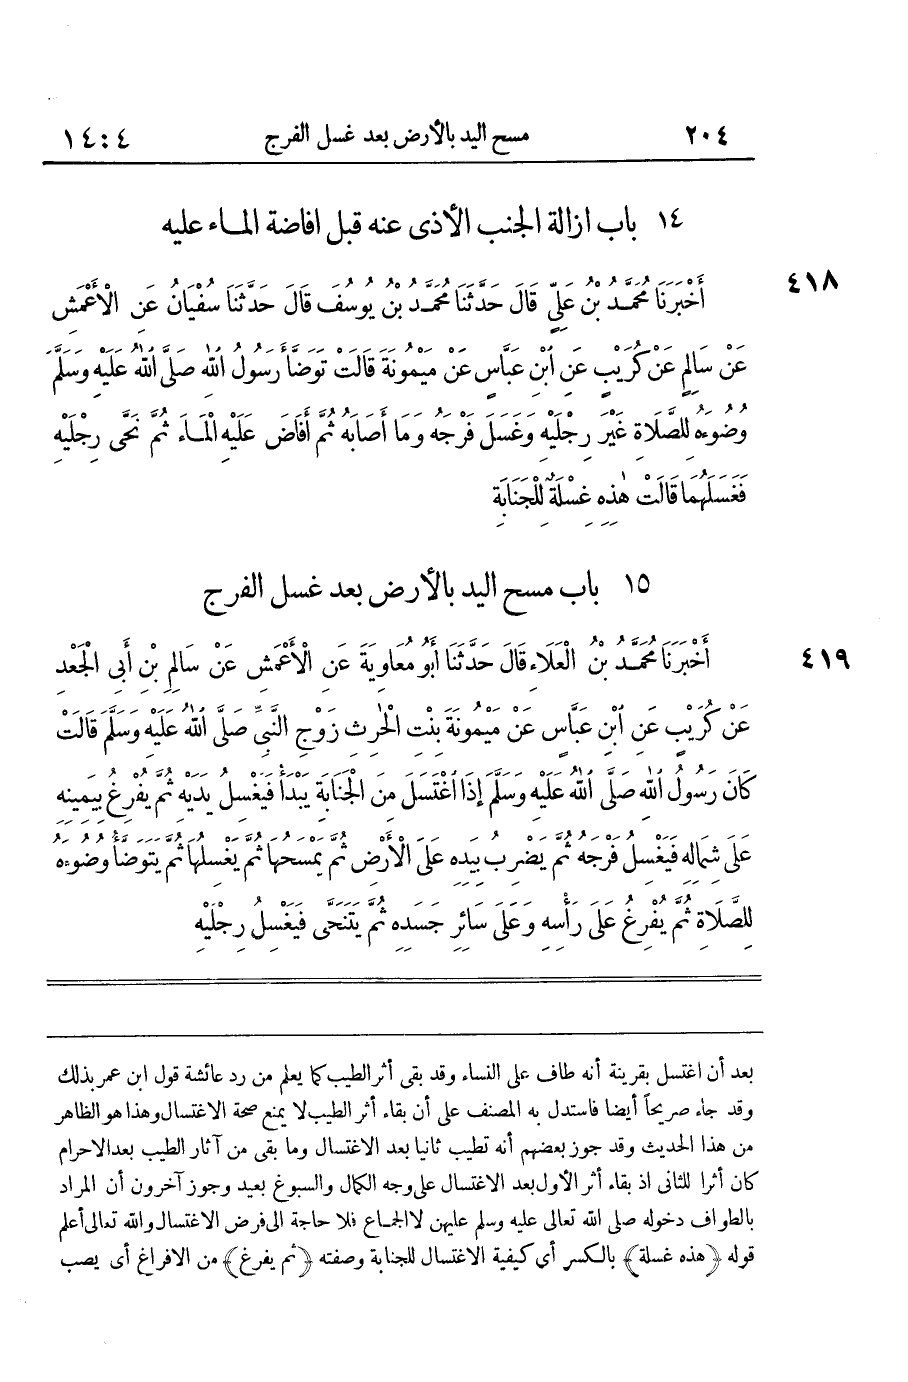 ٢٠٤ مسح اليد بالأرض بعد غسل الفرج ٤ : ١٤
١٤ باب ازالة الجنب الأذى عنه قبل افاضة الماء عليه
٤١٨ أَخْبَرَنَا مُحَمَّدُ بْنُ عَلِيٍّ قَالَ حَدَّثَنَا مُحَمَّدُ بْنُ يُوسُفَ قَالَ حَدَّثَنَا سُفْيَانُ عَنِ الْأَعْمَشِ
عَنْ سَالِمٍ عَنْ كُرَيْبٍ عَنِ ابْنِ عَبَّاسٍ عَنْ مَيْمُونَةَ قَالَتْ تَوَضَّأَ رَسُولُ اللهِ صَلَّى اللهُ عَلَيْهِ وَسَلَّمَ
وُضُوءَهُ لِلصَّلَاةِ غَيْرَ رِجْلَيْهِ وَغَسَلَ فَرْجَهُ وَمَا أَصَابَهُ ثُمَّ أَفَاضَ عَلَيْهِ الْمَاءَ ثُمَّ نَحَّى رِجْلَيْهِ
فَغَسَلَهُمَا قَالَتْ هٰذِهِ غِسْلَةٌ لِلْجَنَابَةِ
١٥ باب مسح اليد بالأرض بعد غسل الفرج
٤١٩ أَخْبَرَنَا مُحَمَّدُ بْنُ الْعَلَاءِ قَالَ حَدَّثَنَا أَبُو مُعَاوِيَةَ عَنِ الْأَعْمَشِ عَنْ سَالِمِ بْنِ أَبِي الْجَعْدِ
عَنْ كُرَيْبٍ عَنِ ابْنِ عَبَّاسٍ عَنْ مَيْمُونَةَ بِنْتِ الْحٰرِثِ زَوْجِ النَّبِيِّ صَلَّى اللهُ عَلَيْهِ وَسَلَّمَ قَالَتْ
كَانَ رَسُولُ اللهِ صَلَّى اللهُ عَلَيْهِ وَسَلَّمَ إِذَا اغْتَسَلَ مِنَ الْجَنَابَةِ يَبْدَأُ فَيَغْسِلُ يَدَيْهِ ثُمَّ يُفْرِغُ بِيَمِينِهِ
عَلَى شِمَالِهِ فَيَغْسِلُ فَرْجَهُ ثُمَّ يَضْرِبُ بِيَدِهِ عَلَى الْأَرْضِ ثُمَّ يَمْسَحُهَا ثُمَّ يَغْسِلُهَا ثُمَّ يَتَوَضَّأُ وُضُوءَهُ
لِلصَّلَاةِ ثُمَّ يُفْرِغُ عَلَى رَأْسِهِ وَعَلَى سَائِرِ جَسَدِهِ ثُمَّ يَتَنَحَّى فَيَغْسِلُ رِجْلَيْهِ
بعد أن اغتسل بقرينة أنه طاف على النساء وقد بقى أثر الطيب كما يعلم من رد عائشة قول ابن عمر بذلك
وقد جاء صريحاً أيضا فاستدل به المصنف على أن بقاء أثر الطيب لا يمنع صحة الاغتسال وهذا هو الظاهر
من هذا الحديث وقد جوز بعضهم أنه تطيب ثانيا بعد الاغتسال وما بقى من آثار الطيب بعد الاحرام
كان أثرا للثانى اذ بقاء أثر الأول بعد الاغتسال على وجه الكمال والسبوغ بعيد وجوز آخرون أن المراد
بالطواف دخوله صلى الله تعالى عليه وسلم عليهن لا الجماع فلا حاجة الى فرض الاغتسال والله تعالى أعلم
قوله ﴿هذه غسلة﴾ بالكسر أى كيفية الاغتسال للجنابة وصفته ﴿ثم يفرغ﴾ من الافراغ أى يصب